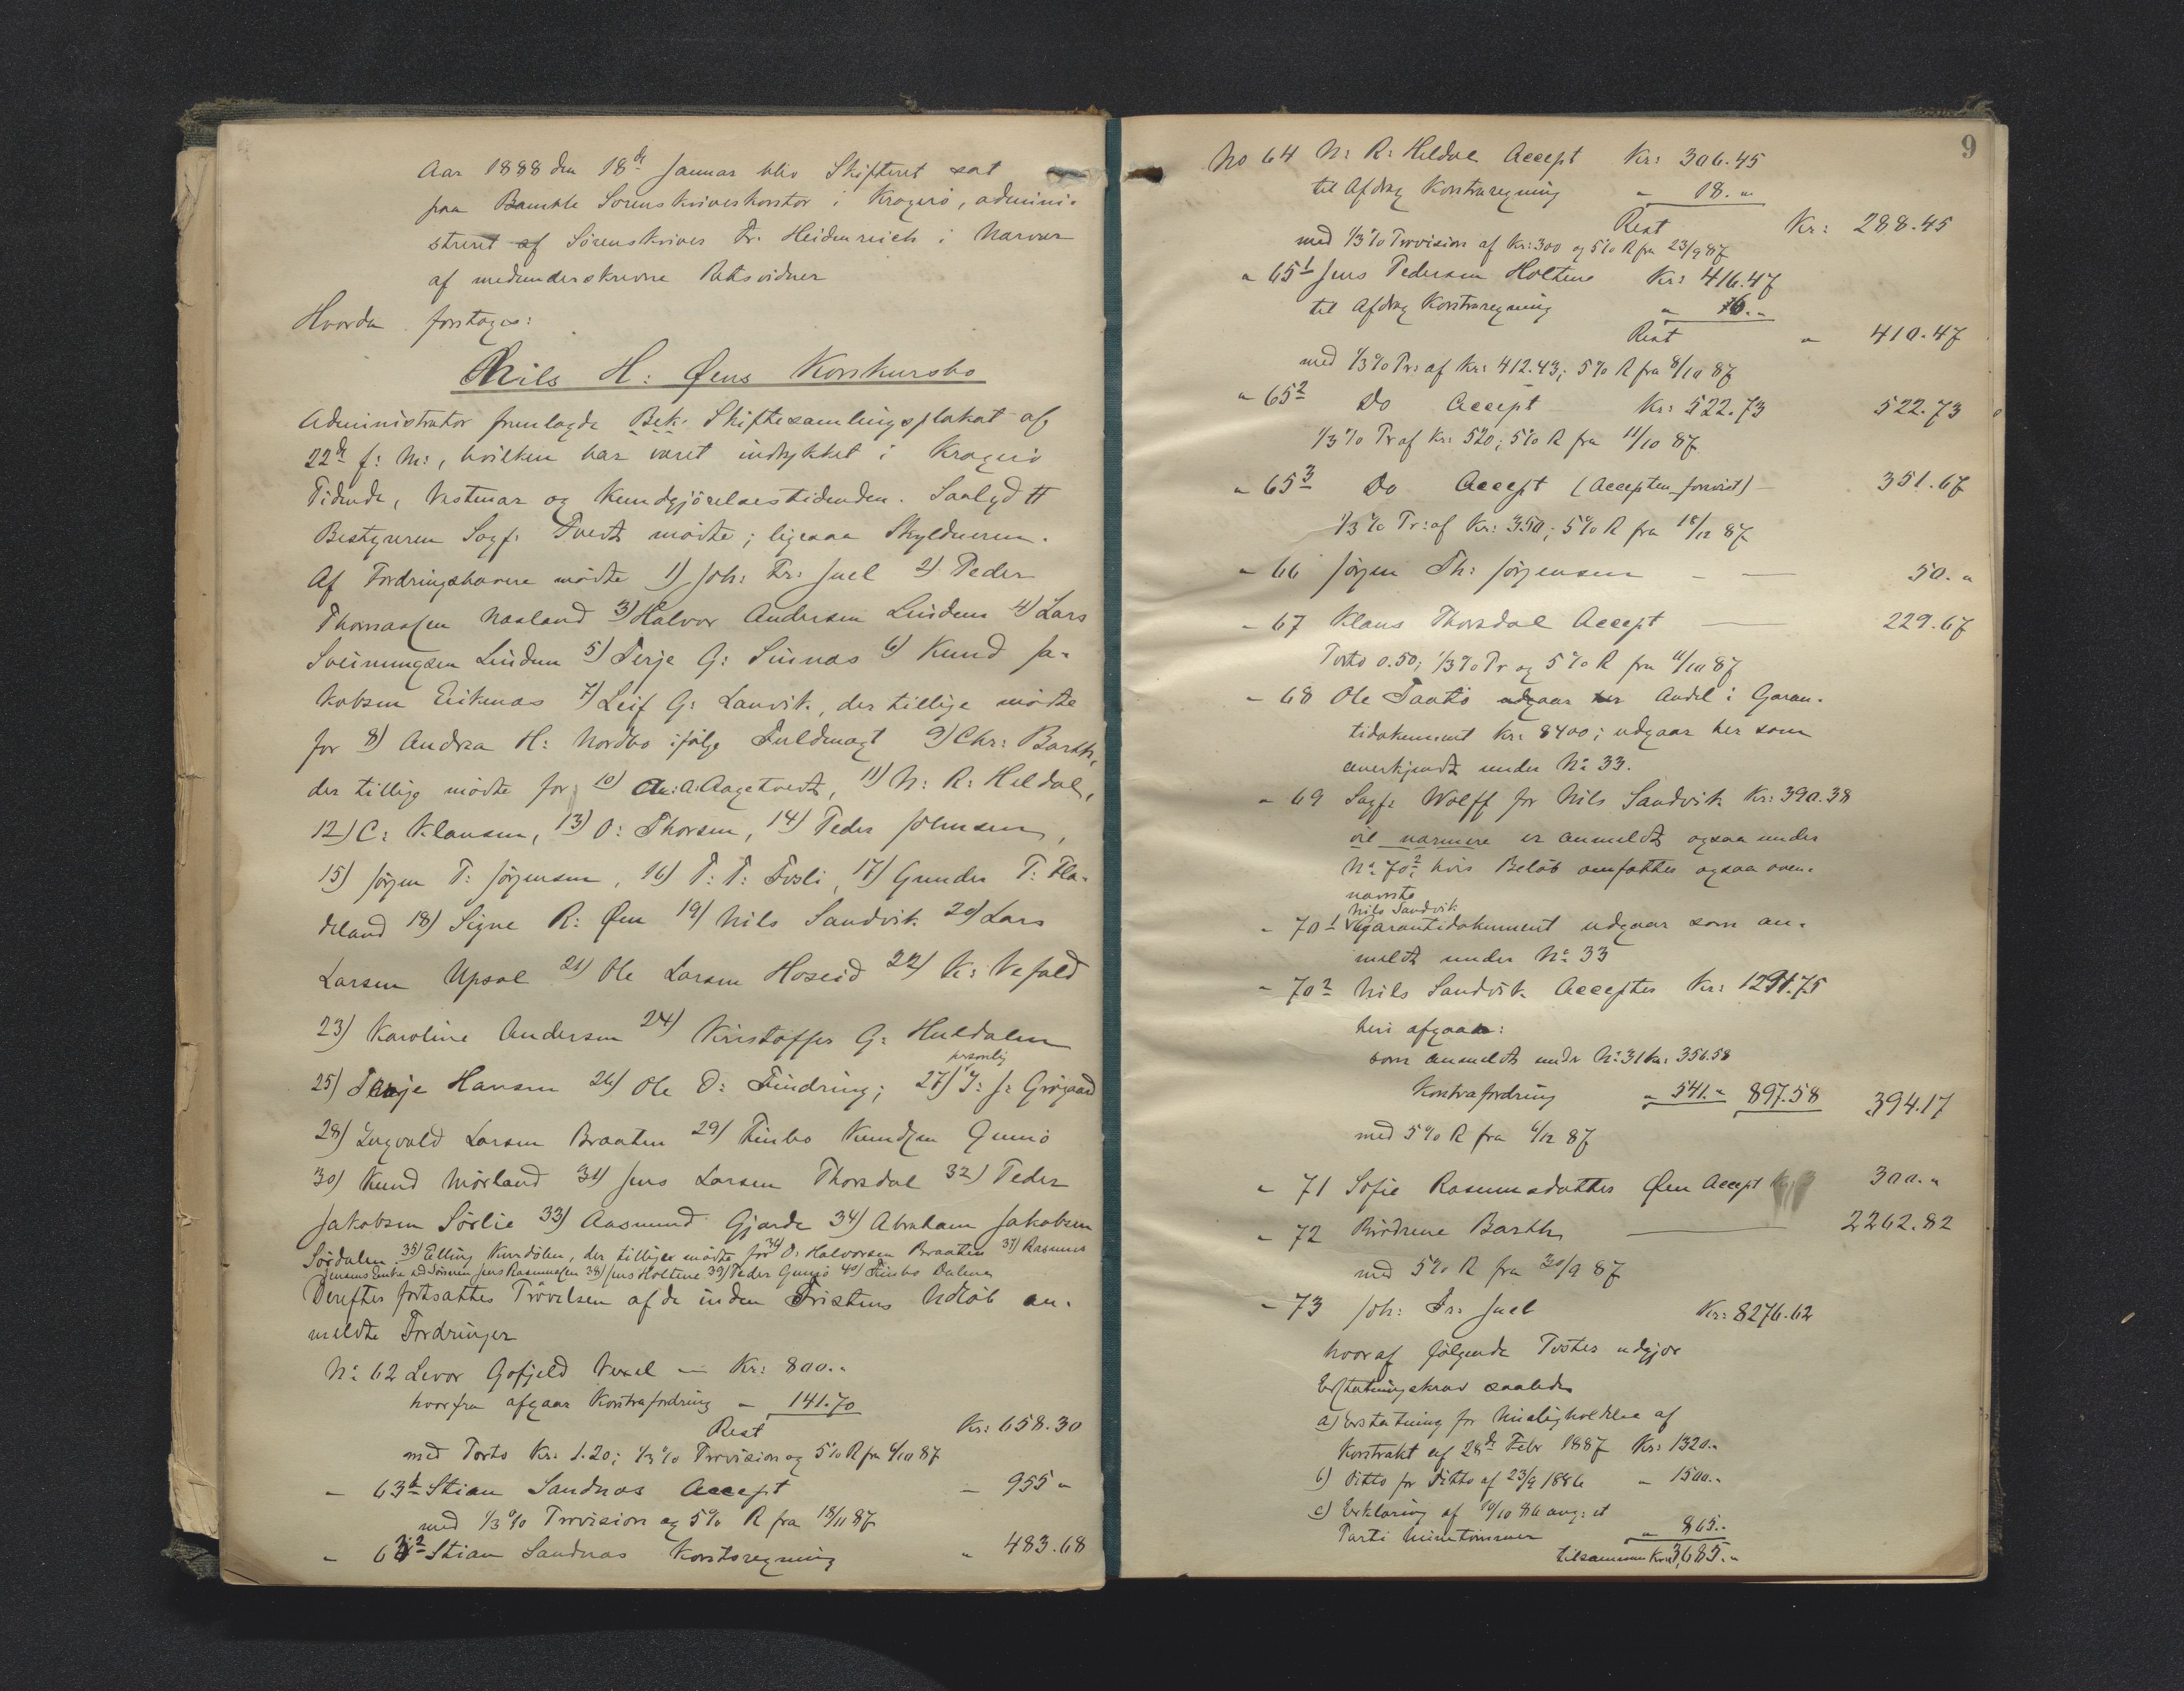 Aar 1888 den 18de Januar blev Skifteret sat
paa Bamble Sorenskriverkontor i Kragerø, admini-
streret af Sörenskriver Fr. Heidenreich i Nærvær
af medunderskrevne Retsvidner
Hvorda foretoges:
Nils H: Øens Konkursbo
Administrator fremlagde Bek. Skiftesamlingsplakat af
22de f: M:, hvilken har været indrykket i Kragerö
Tidende, Vestmar og Kundgjörelsestidenden. Saalydtt
Bestyreren Sagf. Tvedt mödte; ligesaa Skyldneren.
Af Fordringshavere mödte 1) Joh: Fr: Juel 2) Peder
Thomassen Naaland 3) Halvor Andersen Lindem 4) Lars
Sveinungsen Lindem 5) Terje G: Sinnes 6) Knud Ja-
kobsen Eikenæs 7) Leif G: Lanvik, der tillige mödte
for 8) Andrea H: Nordbo ifölge Fuldmagt 9) Chr: Barth,
der tillige mödte for 10) A: Aagetvedt, 11) N: R: Heldal,
12) C: Klausen, 13) O: Thorsen, 14) Peder Johnsen,
15) Jörgen T: Jörgensen, 16) T: T: Fosli, 17) Gunder T: Fla-
deland 18) Signe R: Øen 19) Nils Sandvik 20) Lars
Larsen Upsal 21) Ole Larsen Hoseid 22) K: Vefald
23) Karoline Andersen 24) Kristoffer G: Huldalen
personlig
25) Terje Hansen 26) Ole O: Tindring; 27) J: J: Grögaard
28) Ingvald Larsen Braaten 29) Finbo Knudsen Gumö
30) Knud Mörland 31) Jens Larsen Thorsdal 32) Peder
Jakobsen Sörlie 33) Aasmund Gjerde 34) Abraham Jakobsen
Sördalen 35) Elling Kurdölen, der tilliger mödte for 36) O: Halvorsen Braaten 37) Rasmus
Jensens Enke ved Sönnen Jens Rasmussen 38) Jens Holtene 39) Peder Gumö 40) Finbo Dalene
Derefter fortsattes Prövelsen af de inden Fristens Udlöb an-
meldte Fordringer
No 62 Levor Gofjeld Vexel — Kr: 800.„
hvorfra afgaar Kontrafordring „ 141.70
Rest Kr: 658.30
med Porto Kr. 1.20; 1/3 % Provision og 5% R fra 4/10 87
„ 63 1 Stian Sandnæs Accept „ 955 „
med 1/3 % Provision og 5% R fra 18/11 87
„ 63 2 Stian Sandnæs Kontoregning „ 483.68
9
No 64 N: R: Heldal Accept Kr: 306.45
til Afdrag Kontraregning „ 18.„
Rest Kr: 288.45
med 1/3 % Provision af Kr: 300 og 5% R fra 23/9 87
„ 65 1 Jens Pedersen Holtene Kr: 416.47
til Afdrag Kontraregning „ 6.„
Rest „ 410.47
med 1/3 % Pr: af Kr: 412.43; 5% R fra 8/10 87
„ 65 2 Do Accept Kr: 522.73 522.73
1/3 % Pr af Kr: 520; 5% R fra 11/10 87
„ 65 3 Do Accept (Accepten forevist) — 351.67
1/3 % Pr: af Kr: 350; 5% R fra 18/12 87
„ 66 Jörgen Th: Jörgensen — — 50.„
„ 67 Klaus Thorsdal Accept — 229.67
Porto 0.50; 1/3 % Pr og 5% R fra 11/10 87
„ 68 Ole Taatö udgaar her Andel i Garan-
tidokument Kr: 8400; udgaar her som
anerkjendt under No 33.
„ 69 Sagf: Wolff for Nils Sandvik Kr: 390.38
vil nærmere er anmeldt ogsaa under
No 70 2 hvis Belöb omfattes ogsaa oven-
nævnte
Nils Sandvik
„ 70 1 Garantidokument udgaar som an-
meldt under No 33
„ 70 2 Nils Sandvik Accepter Kr: 1291.75
heri afgaar:
som anmeldt under No 31 Kr: 356.58
Kontrafordring „ 541.„ 897.58 394.17
med 5% R fra 6/12 87
„ 71 Sofie Rasmusdatter Øen Accept 300.„
„ 72 Brödrene Barth — 2262.82
med 5% R fra 30/9 87
„ 73 Joh: Fr: Juel Kr: 8276.62
hvoraf fölgende Poster udgjör
Erstatningskrav saaledes
a) Erstatning for Misligholdelse af
Kontrakt af 28de Febr 1887 Kr: 1320.„
b) Ditto for Ditto af 23/9 1886 „ 1500.„
c) Erklæring af 10/10 86 ang: et
Parti Minetömmer „ 865.„
tilsammen Kr: 3685.„